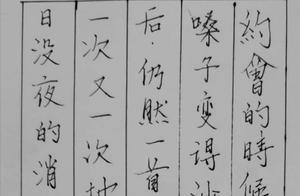 約會的時候
嗓子变得沙
后,仍然一首
一次又一次地
日没夜的消